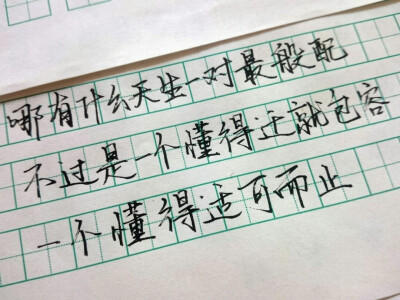 哪有什么天生一对最般配
不过是一个懂得迁就包容
一个懂得适可而止